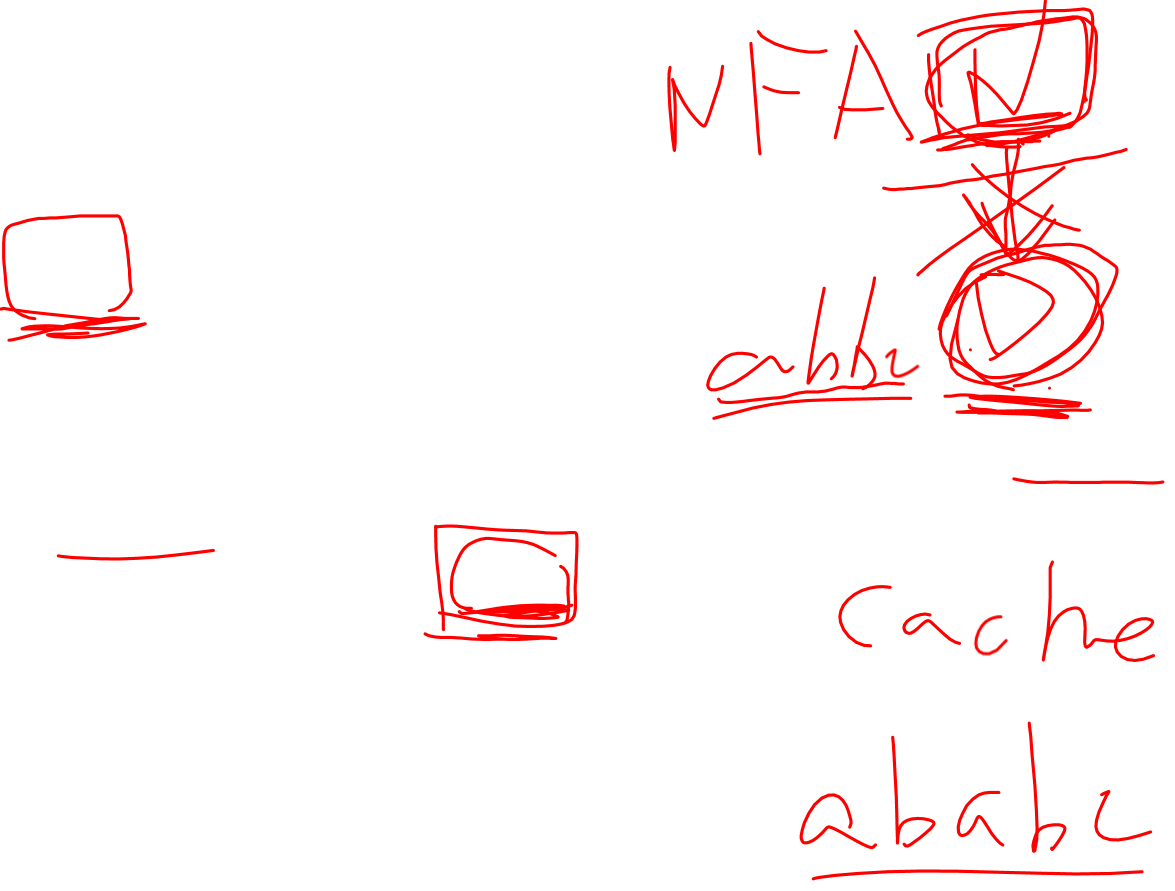 NFA N
D
abbc
cache
ababc